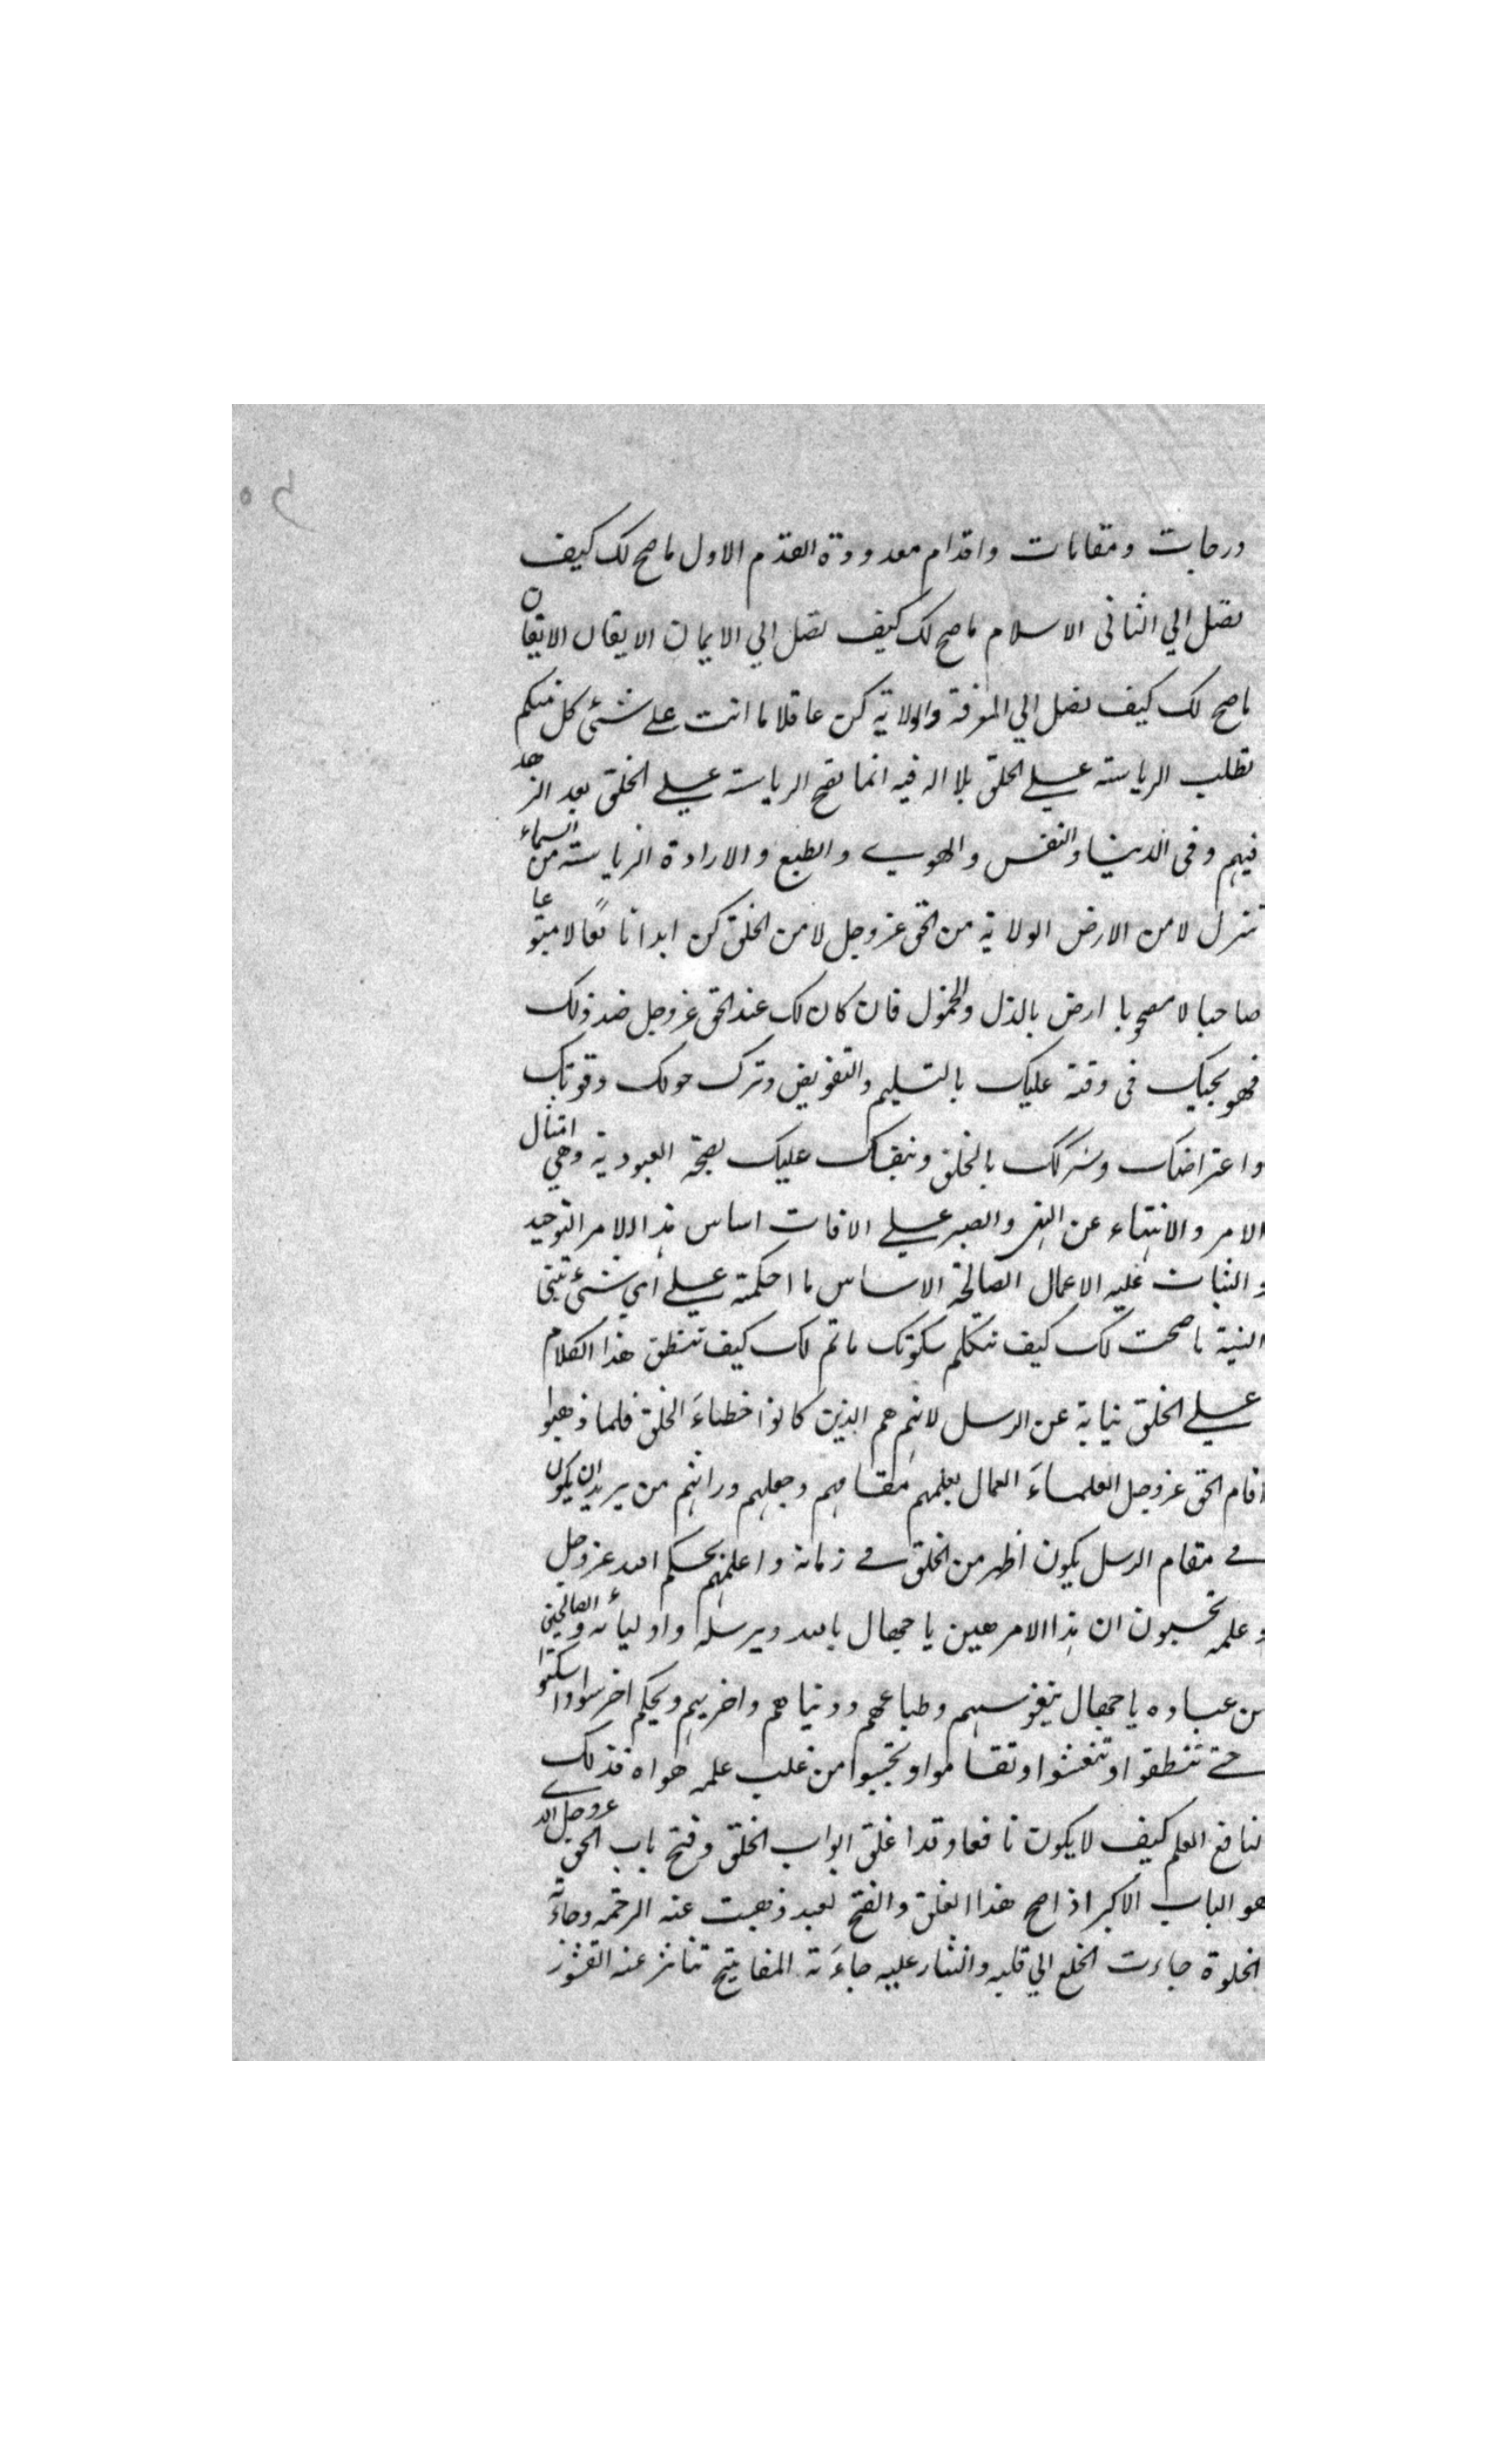 درجات ومقامات واقدام معدودة القدم الاول ماصح لك كيف
تصل الي الثانى الاسلام ماصح لك كيف تصل الي الايمان الايقان الايقان
ماصح لك كيف تصل الي المعرفة والولاية كن عاقلا ما انت علے شئ كل منكم
تطلب الرياسة علے الخلق بلا اله فيه انما تصح الرياسة علے الخلق بعد الزهد
فيهم وفى الدنيا والنفس والهوي والطبع والارادة الرياسة من السماء
تنزل لا من الارض الولاية من الحق عزوجل لا من الخلق كن ابدا تابعًا لا متبوعا
صاحبا لا مصحوبا ارض بالذل والخمول فان كان لك عند الحق عزوجل ضد ذلك
فهو يجيك فى وقته عليك بالتسليم والتفويض وترك حولك وقوتك
واعتراضك وشركك بالخلق ونفسك عليك بصحة العبودية وهي امتثال
الامر والانتهاء عن النهى والصبر علے الافات اساس هذا الامر التوحيد
والثبات عليه الاعمال الصالحة الاساس ما احكمته علے اي شئ تبنى
النية ما صحت لك كيف تتكلم سكوتك ماتم لك كيف تنطق هذا الكلام
علے الخلق نيابة عن الرسل لانهم هم الذين كانوا خطباءَ الخلق فلما ذهبوا
اقام الحق عزوجل العلماءَ العمال بعلمهم مقامهم وجعلهم وراثهم من يريد ان يكون
فے مقام الرسل يكون اطهر من الخلق فے زمانه واعلمهم بحكم الله عزوجل
وعلمه تحسبون ان هذا الامر هين يا جهال بالله وبرسله واوليائه والصالحين
من عباده يا جهال بنفوسهم وطباعهم ودنياهم واخريهم ويحكم اخرسوا واسكتوا
حتے تنطقوا وتنعشوا وتقاموا وتجيبوا من غلب علمه هواه فذلك
النافع العلم كيف لا يكون نافعا وقد اغلق ابواب الخلق وفتح باب الحق عزوجل الذے
هو الباب الاكبر اذا صح هذا الغلق والفتح لعبد ذهبت عنه الزحمه وجاءته
الخلوة جاءت الخلع الي قلبه والنثار عليه جاءَته المفاتيح تناثر عنه القشور